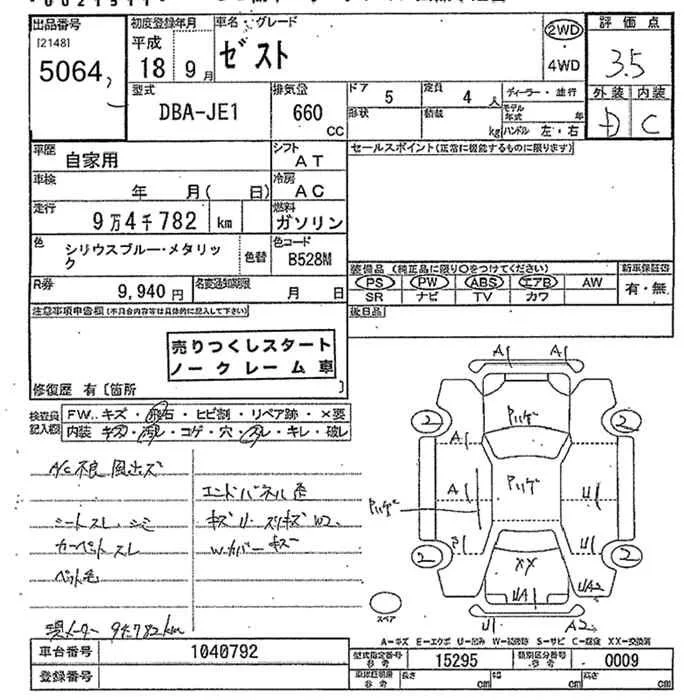 出品番号 初度登録年月 車名・グレード 評価点
[2148] 平成 ゼスト 2WD 3.5
5064 18 9月 4WD
型式 排気量 ドア 定員 ディーラー・並行 外装 内装
DBA-JE1 660 CC 5 4人 モデル年式 年 D C
形状 積載 kg ハンドル 左・右
車歴 自家用 シフト AT セールスポイント(正常に機能するものに限ります)
車検 年 月( 日) 冷房 AC
走行 9万4千782 km 燃料 ガソリン
色 シリウスブルー・メタリック 色替 色コード B528M
装備品 (純正品に限り○をつけてください) 新車保証書
PS PW ABS エアB AW 有・無
SR ナビ TV カワ
R券 9,940円 名変通知期限 月 日
注意事項申告欄(不具合内容等は具体的に記入して下さい) 後日品
売りつくしスタート
ノークレーム車
修復歴 有〔箇所 〕
検査員記入欄 FW.. キズ・飛石・ヒビ割・リペア跡・×要
内装 キズ・汚レ・コゲ・穴・スレ・キレ・破レ
A/C不良 風出ズ
エンドパネル歪
シートスレ、シミ
キズ U・スリキズ W2、
カーペットスレ
Wカバーキズ
ペット毛
現メーター 94782km
A1 A1
Pハゲ
2 2
A1
A1 Pハゲ U1
Pハゲ
P1 U1
2 XX 2
UA1 UA2
U1 A2
スペア
A-キズ E-エクボ U-凹み W-補修跡 S-サビ C-腐食 XX-交換済
車台番号 1040792 型式指定番号 参考 15295 類別区分番号 参考 0009
登録番号 車検証期限 参考 長さ cm 幅 cm 高さ cm